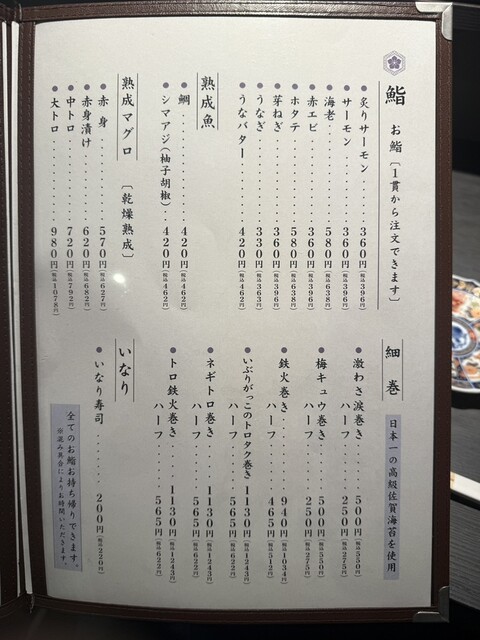 鮨 お鮨〔1貫から注文できます〕
炙りサーモン 360円(税込396円)
サーモン 360円(税込396円)
海老 580円(税込638円)
赤エビ 360円(税込396円)
ホタテ 580円(税込638円)
芽ねぎ 360円(税込396円)
うなぎ 330円(税込363円)
うなバター 420円(税込462円)
熟成魚
鯛 420円(税込462円)
シマアジ(柚子胡椒) 420円(税込462円)
熟成マグロ 〔乾燥熟成〕
赤身 570円(税込627円)
赤身漬け 620円(税込682円)
中トロ 720円(税込792円)
大トロ 980円(税込1078円)
細巻 日本一の高級佐賀海苔を使用
激わさ涙巻き 500円(税込550円)
ハーフ 250円(税込275円)
梅キュウ巻き 500円(税込550円)
ハーフ 250円(税込275円)
鉄火巻き 940円(税込1034円)
ハーフ 465円(税込512円)
いぶりがっこのトロタク巻き 1130円(税込1243円)
ハーフ 565円(税込622円)
ネギトロ巻き 1130円(税込1243円)
ハーフ 565円(税込622円)
トロ鉄火巻き 1130円(税込1243円)
ハーフ 565円(税込622円)
いなり
いなり寿司 200円(税込220円)
全てのお鮨お持ち帰りできます。
※混み具合によりお時間いただきます。